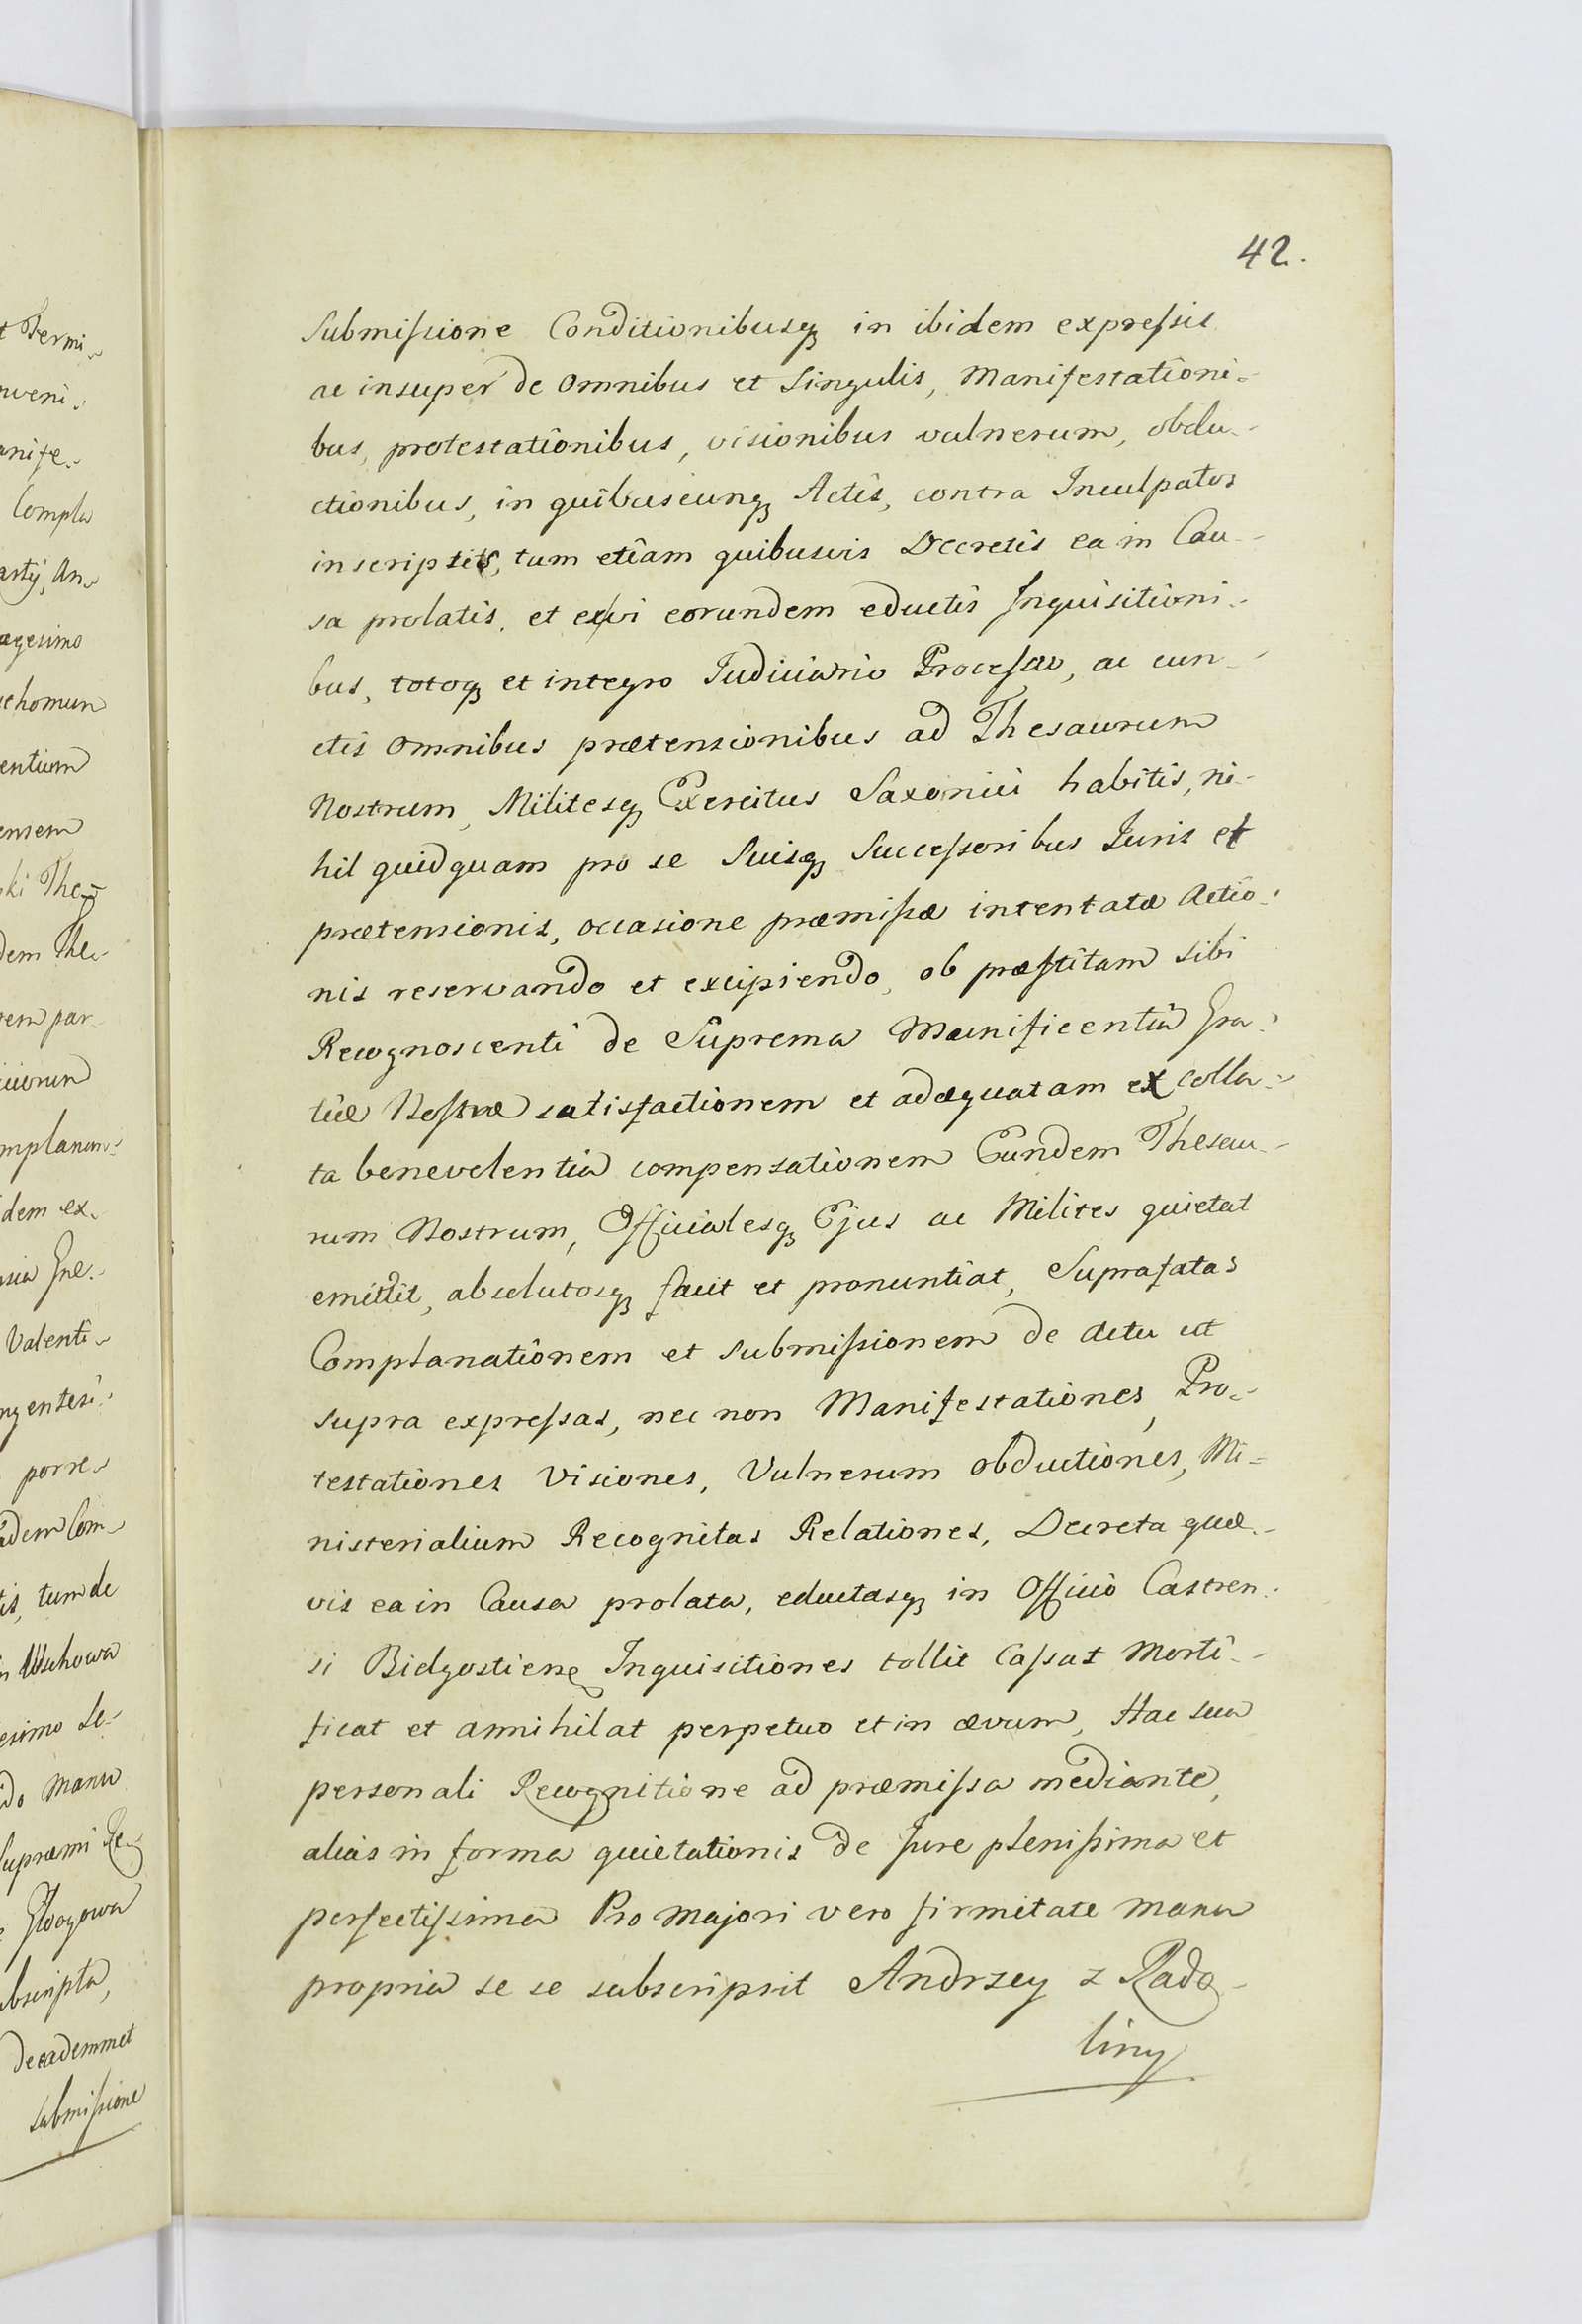 42.
Submiſsione Conditionibusq; in ibidem expreſsis
ac insuper de omnibus et Singulis, Manifestationi-
bus, protestationibus, visionibus vulnerum, obdu-
ctionibus, in quibuscunq; Actis, contra Inculpatos
inscriptis, tum etiam quibusvis Decretis ea in Cau-
sa prolatis. et exvi eorundem eductis Inquisitioni-
bus, totoq; et integro Iudiciario Proceſsu, ac cun-
ctis omnibus prætensionibus ad Thesaurum
Nostrum, Militesq; Exercitus Saxonici habitis, ni-
hil quidquam pro se Suisq; Succeſsoribus Iuris et
prætensionis, occasione præmiſsæ intentatæ Actio-
nis reservando et excipiendo, ob præſtitam sibi
Recognoscenti de Suprema Munificentia Gra-
tiæ Noſtræ satisfactionem et adæquatam ex colla-
ta benevolentia compensationem Eundem Thesau-
rum Nostrum, Officialesq; Ejus ac Milites quietat
emittit, absolutosq; facit et pronuntiat, Suprafatas
Complanationem et submiſsionem de actu ut
supra expreſsas, nec non Manifestationes, Pro-
testationes Visiones, Vulnerum obductiones, Mi-
nisterialium Recognitas Relationes, Decreta quæ-
vis ea in Causa prolata, eductasq; in Officio Castren-
si Bidgostiens Inquisitiones tollit Caſsat Morti-
ficat et annihilat perpetuo et in ævum, Hac sua
personali Recognitione ad præmiſsa mediante,
alias in forma quietationis de Iure pleniſsima et
perfectiſsima Pro majori vero firmitate manu
propria se se subscripsit Andrzey z Rado-
liny